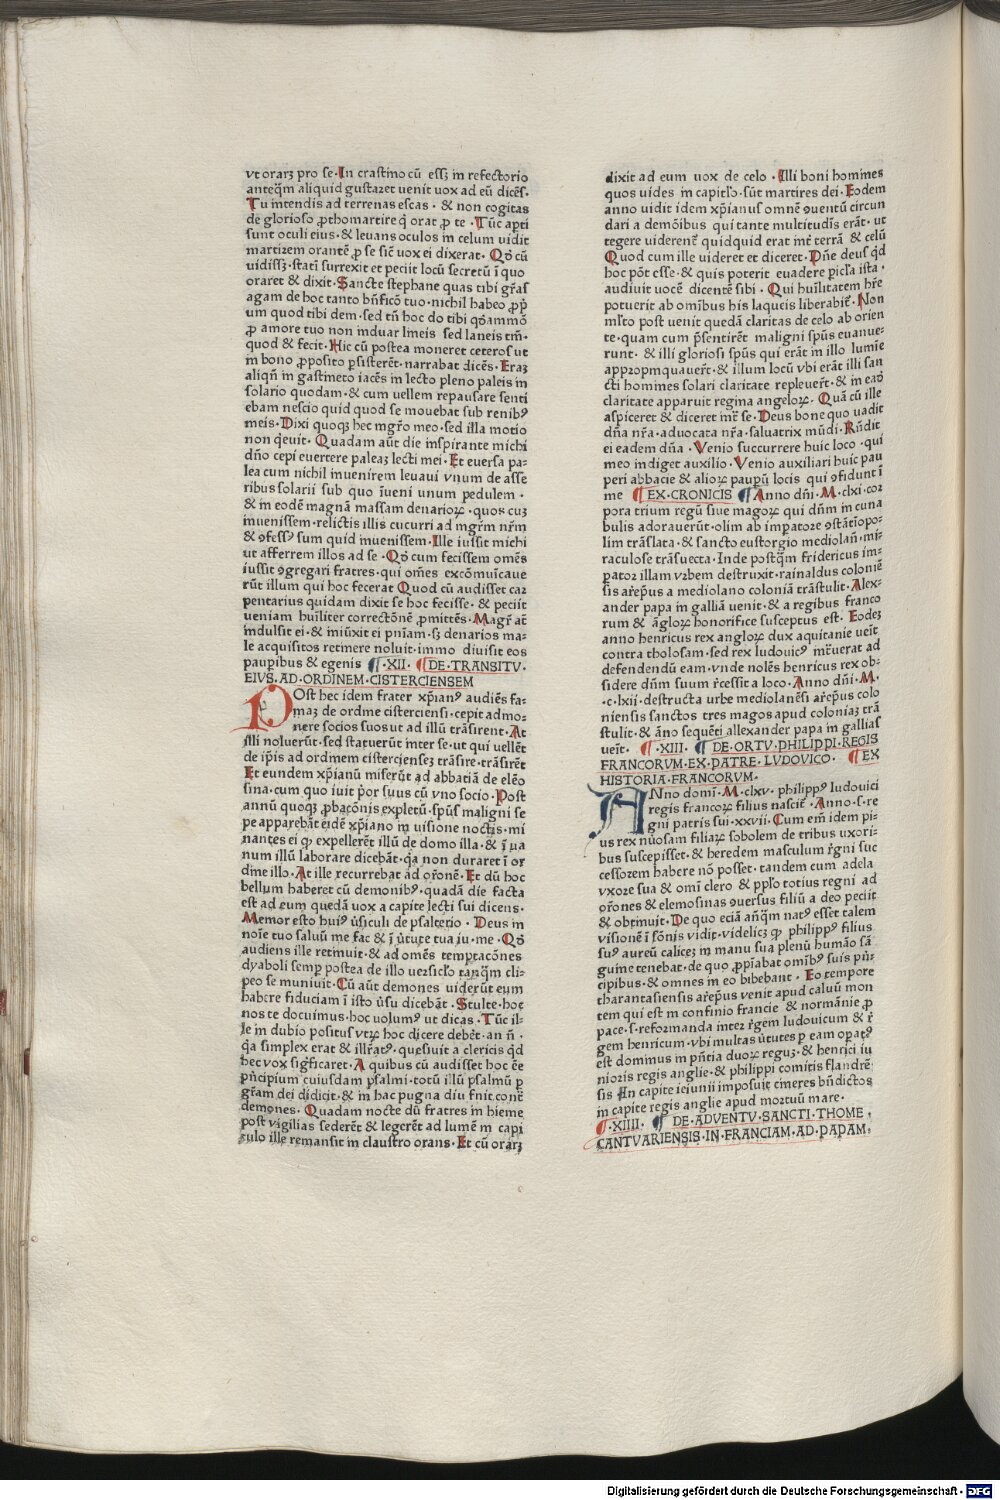 vt oraꝫ pro se·In crastino cū esſꝫ in refectorio
anteq̄m aliquid gustaꝫet uenit uox ad eū dicēs·
Tu intendis ad terrenas escas· & non cogitas
de glorioso ꝓthomartire q̇ orat ꝓ te·Tūc apti
sunt oculi eius·& leuans oculos in celum uidit
martirem orantē ꝓ se sic̄ uox ei dixerat·Qd̄ cū
uidissꝫ·stati surrexit et peciit locū secretū ī quo
oraret & dixit·Sancte stephane quas tibi gr̄as
agam de hoc tanto bn̄ficō tuo·nichil habeo ꝓp̄
um quod tibi dem·sed tn̄ hoc do tibi qd̄ammō
ꝓ amore tuo non induar lineis sed laneis tm̄·
quod & fecit·Hic cū postea moneret ceteros ut
in bono ꝓposito ꝑsisterēt·narrabat dicēs·Eraꝫ
aliqn̄ in gastineto iacēs in lecto pleno paleis in
solario quodam·& cum uellem repausare senti
ebam nescio quid quod se mouebat sub renibꝰ
meis·Dixi quoqꝫ hec mgr̄o meo·sed illa motio
non q̇euit·Quadam aūt die inspirante michi
dn̄o cepi euertere paleaꝫ lecti mei·Et euersa pa-
lea cum nichil inuenirem leuaui vnum de asse
ribus solarii sub quo īueni unum pedulem·
& in eodē magnā massam denarioꝝ·quos cuꝫ
inuenissem·relictis illis cucurri ad mgr̄m nr̄m
& ꝯfessꝰ sum quid inuenissem·Ille iussit michi
ut afferrem illos ad se·Qd̄ cum fecissem omēs
iussit ꝯgregari fratres·qui om̄es excōmuīcaue
rūt illum qui hoc fecerat Quod cū audisset car
pentarius quidam dixit se hoc fecisse·& peciit
ueniam huīliter correctōnē ꝓmittēs·Magr̄ at̄
indulsit ei·& iniūxit ei pn̄iam·sꝫ denarios ma-
le acquisitos retinere noluit·immo diuisit eos
paupibus & egenis ¶·XII·¶DE·TRANSITV·
EIVS·AD·ORDINEM·CISTERCIENSEM
POst hec idem frater xp̄ianꝰ audiēs fa-
maꝫ de ordine cisterciensi·cepit admo-
nere socios suos ut ad illū trāsirent·At
illi noluerūt·sed statuerūt inter se·ut qui uellēt
de ip̄is ad ordinem cisterciensēꝫ trāsire·trāsirēt
Et eundem xp̄ianū miserūt ad abbatiā de elēo
sina·cum quo iuit p̄or suus cū vno socio·Post
annū quoqꝫ ꝓbacōnis expletū·spūs maligni se
pe apparebāt eidē xp̄iano in uisione noctis·mi
nantes ei ꝙ expellerēt illū de domo illa·& ī ua
num illū laborare dicebāt·q̇a non duraret ī or
dīne illo·At ille recurrebat ad or̄onē·Et dū hoc
bellum haberet cū demonibꝰ·quadā die facta
est ad eum quedā uox a capite lecti sui dicens·
Memor esto huiꝰ ūsiculi de psalterio·Deus in
noīe tuo saluū me fac & ī ūtute tua iu·me·Qd̄
audiens ille retinuit·& ad omēs temptacōnes
dyaboli semꝑ postea de illo uersiclo tanq̄m cli-
peo se muniuit·Cū aūt demones uiderūt eum
habere fiduciam ī isto ūsu dicebāt·Stulte·hoc
nos te docuimus·hoc uolumꝰ ut dicas·Tūc il-
le in dubio positus vtꝝ hoc dicere debēt·an n̄·
q̇a simplex erat & illr̄atꝰ·quesiuit a clericis q̇d
hec vox sig̅ficaret·A quibus cū audisset hoc ēe
pn̄cipium cuiusdam psalmi·totū illū psalmū ꝑ
gr̄am dei didicit·& in hac pugna diu fnit contē
demones·Quadam nocte dū fratres in hieme
post vigilias sederēt & legerēt ad lumē in capi
tulo ille remansit in claustro orans·Et cū oraꝫ
dixit ad eum uox de celo·Illi boni homines
quos uides in capitlo·sūt martires dei·Eodem
anno uidit idem xp̄ianus omnē ꝯuentū circun
dari a demōibus qui tante multitudīs erāt·ut
tegere uiderent̄ quidquid erat int̄ terrā & celū
Quod cum ille uideret et diceret·Dn̄e deus q̇d
hoc pōt esse·& quis poterit euadere ꝑicl̄a ista·
audiuit uocē dicentē sibi·Qui huīlitatem hr̄e
potuerit ab omībus his laqueis liberabit̄·Non
ml̄to post uenit quedā claritas de celo ab orien
te·quam cum p̄sentirēt maligni spūs euanue-
runt·& illi gloriosi spūs qui erāt in illo lumīe
appropinquauer̄t·& illum locū vbi erāt illi san
cti homines solari claritate repleuer̄t·& in eaꝺ
claritate apparuit regina angeloꝝ·Quā cū ille
aspiceret & diceret int̄ se·Deus bone quo uadit
dn̄a nr̄a·aduocata nr̄a·saluatrix mūdi·Rn̄dit
ei eadem dn̄a·Venio succurrere huic loco·qui
meo indiget auxilio·Venio auxiliari huic pau
peri abbacie & alioꝝ paupū locis qui ꝯfidunt ī
me ¶EX·CRONICIS ¶Anno dn̄i·M·clxi·cor
pora trium regū siue magoꝝ qui dn̄m in cuna
bulis adorauerūt·olim ab impatore ꝯstātīopo-
lim trāslata·& sancto eustorgio mediolan̄·mi-
raculose trāsuecta·Inde postq̄m fridericus im-
pator illam vrbem destruxit·rainaldus coloniē
sis ar̄epūs a mediolano coloniā trāstulit·Alex-
ander papa in galliā uenit·& a regibus franco
rum & āgloꝝ honorifice susceptus est·Eodeꝫ
anno henricus rex angloꝝ dux aquitanie ueīt
contra tholosam·sed rex ludouicꝰ int̄uerat ad
defendendū eam·vnde nolēs henricus rex ob-
sidere dn̄m suum r̄cessit a loco·Anno dn̄i·M·
·c·lxii·destructa urbe mediolanēsi ar̄epūs colo
niensis sanctos tres magos apud coloniaꝫ trā
stulit·& āno sequēti allexander papa in gallias
ueīt· ¶·XIII· ¶DE·ORTV·PHILIPPI·REGIS
FRANCORVM·EX·PATRE·LVDOVICO· ¶EX
HISTORIA·FRANCORVM·
ANno domī·M·clxv·philippꝰ ludouici
regis francoꝝ filius nascit̄·Anno·s·re
gni patris sui·xxvii·Cum em̄ idem pi-
us rex nūosam filiaꝝ sobolem de tribus uxori-
bus suscepisset·& heredem masculum r̄gni suc
cessorem habere nō posset·tandem cum adela
vxore sua & omī clero & pplo totius regni ad
or̄ones & elemosinas ꝯuersus filiū a deo peciit
& obtinuit·De quo eciā an̄q̄m natꝰ esset talem
visionē ī sōnis vidit·videlicꝫ ꝙ philippꝰ filius
suꝰ aureū caliceꝫ in manu sua plenū humāo sā
guine tenebat·de quo ꝓpīabat omībꝰ suis pn̄
cipibus·& omnes in eo bibebant·Eo tempore
tharantasiensis ar̄epūs venit apud caluū mon
tem qui est in confinio francie & normānie ꝓ
pace·s·reformanda inter r̄gem ludouicum & r̄
gem henricum·vbi multas ūtutes p eam opatꝰ
est dominus in pn̄tia duoꝝ reguꝫ·& henrici iu
nioris regis anglie·& philippi comitis flandrē
sis In capite ieiunii imposuit cineres bn̄dictos
in capite regis anglie apud mortuū mare·
¶·XIIII· ¶ DE·ADVENTV·SANCTI·THOME·
CANTVARIENSIS·IN·FRANCIAM·AD·PAPAM·
Digitalisierung gefördert durch die Deutsche Forschungsgemeinschaft - DFG